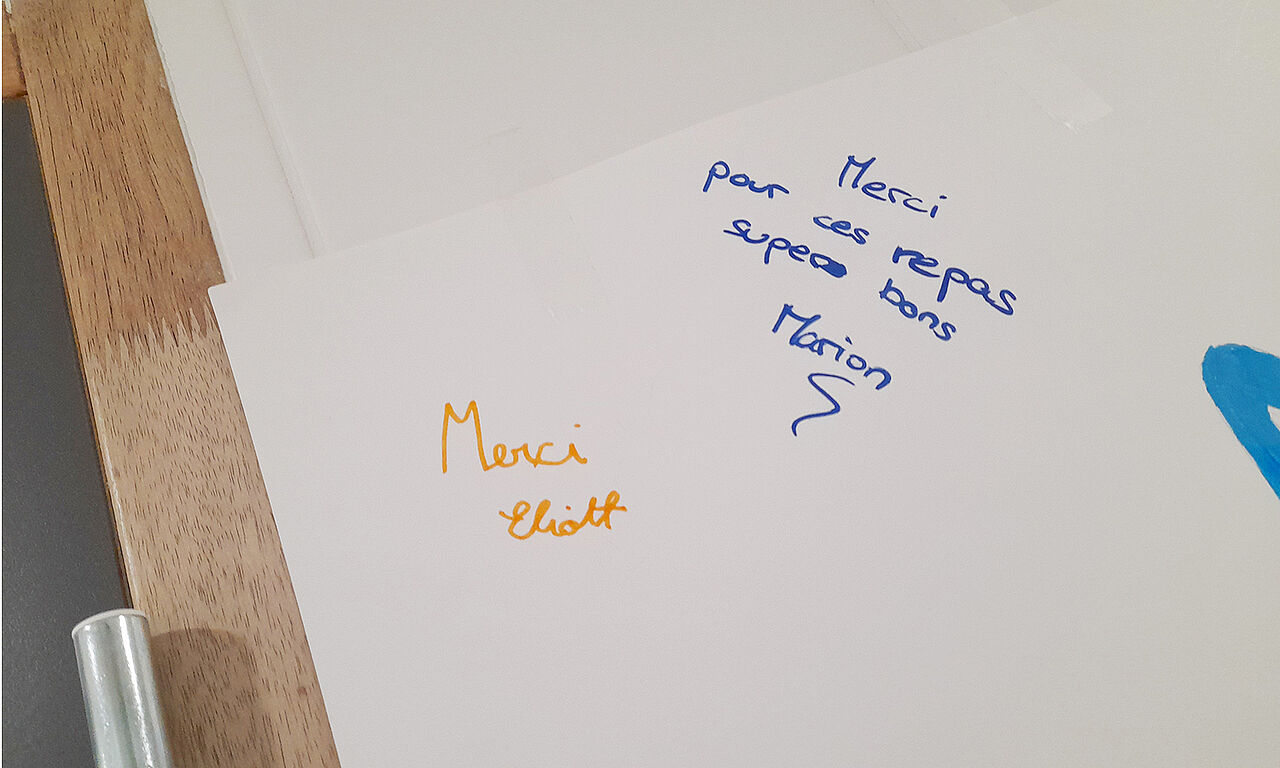 Merci
pour ces repas
super bons
Marion
Merci
Eliott